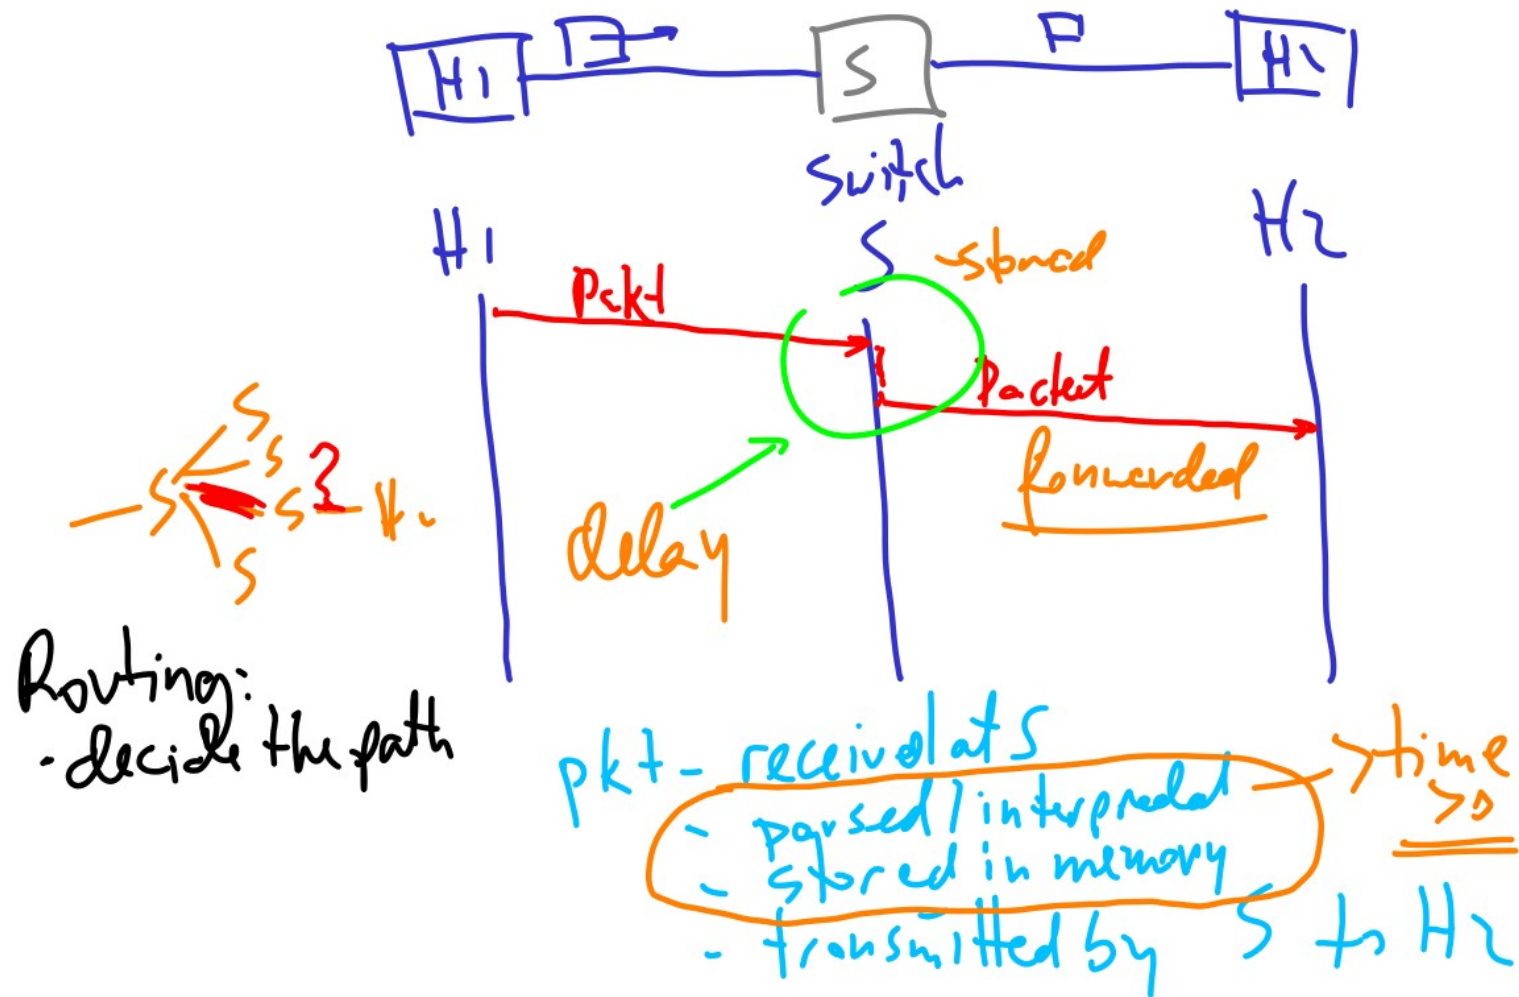 H1
S
H2
Switch
H1
S
H2
- stored
Pckt
Packet
forwarded
delay
S
S
S
S
S
?
H2
Routing:
- decide the path
pkt - received at S
- parsed / interpreted
- stored in memory
- transmitted by S to H2
> time
>0